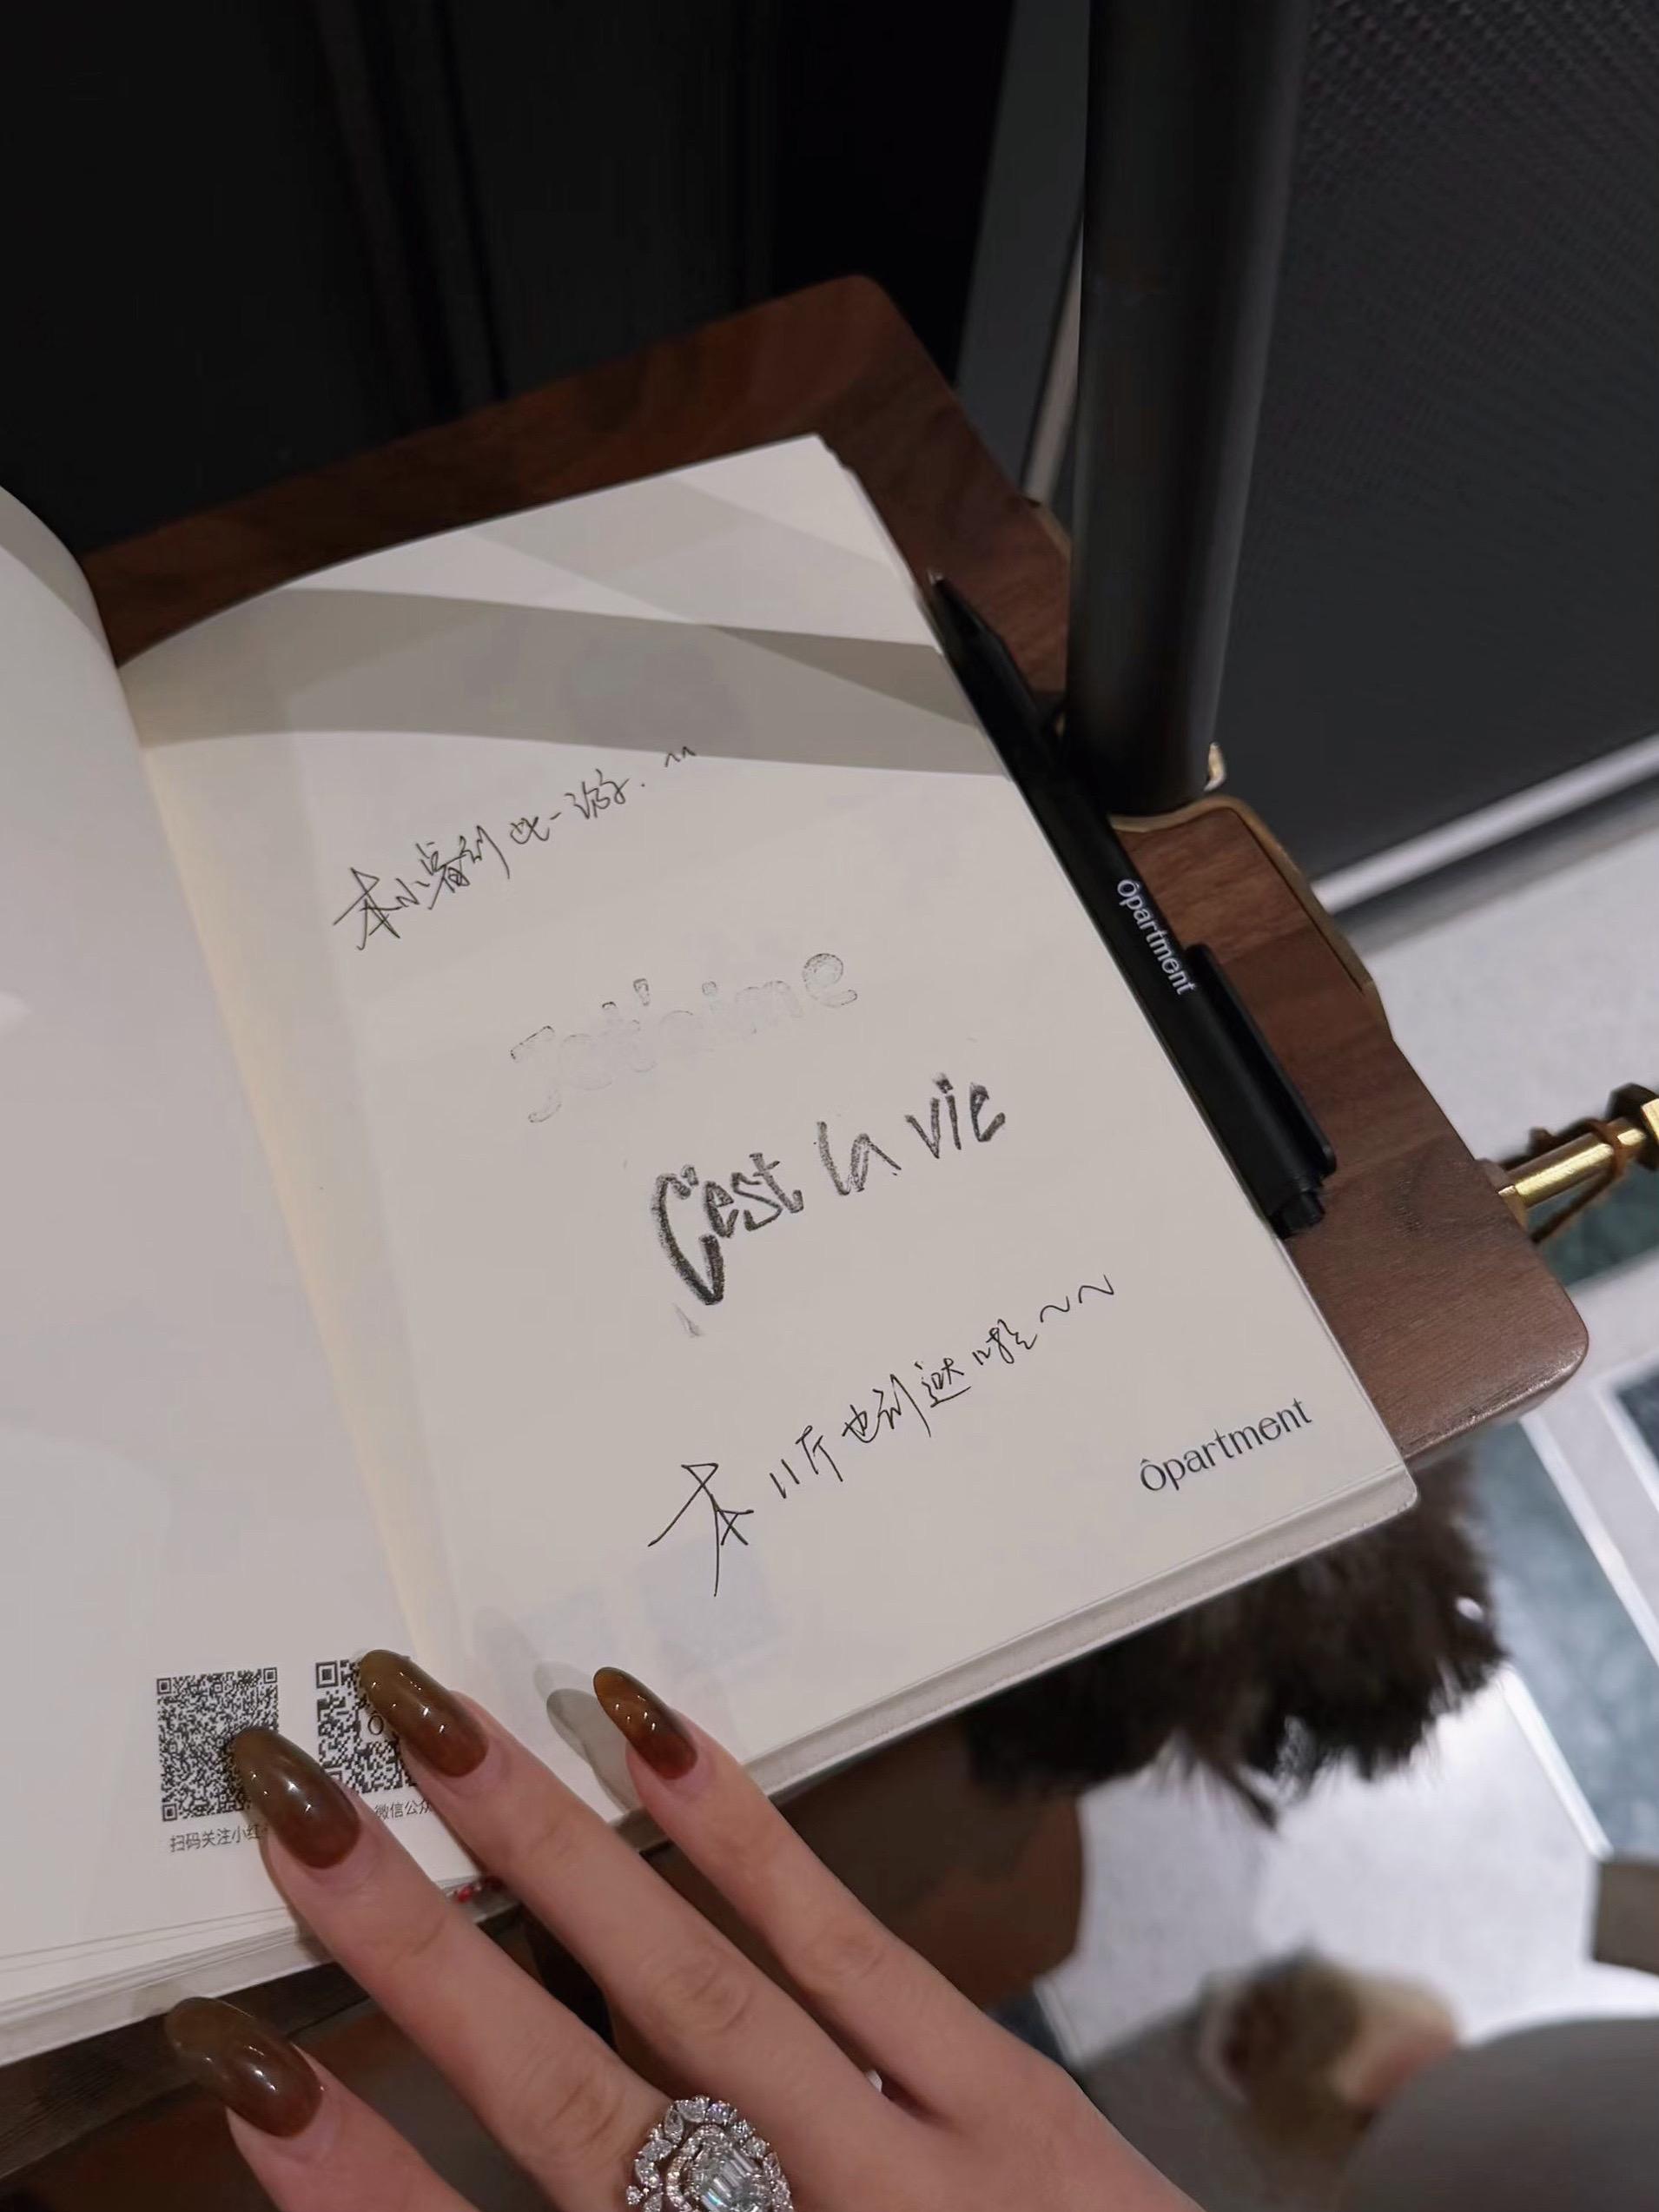 本小睿到此一游.^^
Je t'aime
C'est la vie
本川斤也到这啦～～
Ôpartment
Ôpartment
扫码关注小红
微信公众